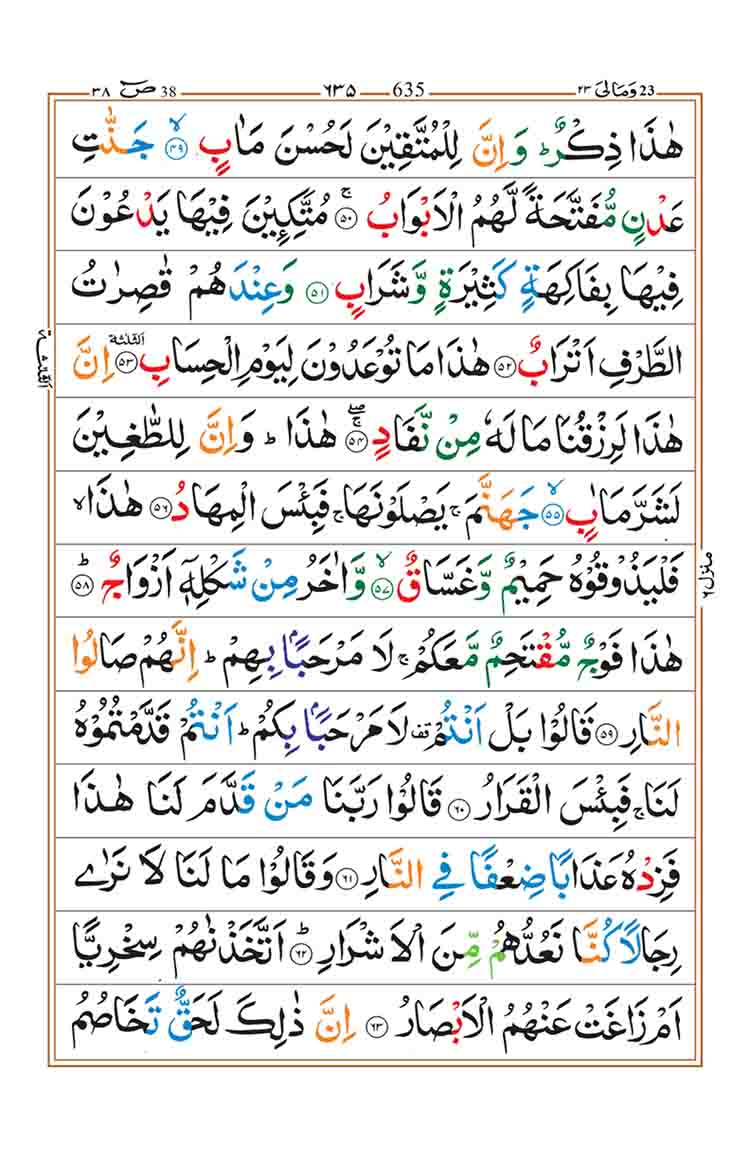 ٣٨ صٓ 38 ٦٣٥ 635 وَمَالِیَ ٢٣ 23
هٰذَا ذِكْرٌ ؕ وَاِنَّ لِلْمُتَّقِیْنَ لَحُسْنَ مَاٰبٍ ۙ﴿۴۹﴾ جَنّٰتِ
عَدْنٍ مُّفَتَّحَةً لَّهُمُ الْاَبْوَابُ ۚ﴿۵۰﴾ مُتَّكِـِٕیْنَ فِیْهَا یَدْعُوْنَ
فِیْهَا بِفَاكِهَةٍ كَثِیْرَةٍ وَّشَرَابٍ ﴿۵۱﴾ وَعِنْدَهُمْ قٰصِرٰتُ
الطَّرْفِ اَتْرَابٌ ﴿۵۲﴾ هٰذَا مَا تُوْعَدُوْنَ لِیَوْمِ الْحِسَابِ ﴿۵۳﴾ الثلثة اِنَّ
الثلثة
هٰذَا لَرِزْقُنَا مَا لَهٗ مِنْ نَّفَادٍ ۚۖ﴿۵۴﴾ هٰذَا ؕ وَاِنَّ لِلطّٰغِیْنَ
لَشَرَّ مَاٰبٍ ۙ﴿۵۵﴾ جَهَنَّمَ ۚ یَصْلَوْنَهَا ۚ فَبِئْسَ الْمِهَادُ ﴿۵۶﴾ هٰذَا ۙ
فَلْیَذُوْقُوْهُ حَمِیْمٌ وَّغَسَّاقٌ ۙ﴿۵۷﴾ وَّاٰخَرُ مِنْ شَكْلِهٖۤ اَزْوَاجٌ ؕ﴿۵۸﴾
منزل ٦
هٰذَا فَوْجٌ مُّقْتَحِمٌ مَّعَكُمْ ۚ لَا مَرْحَبًۢا بِهِمْ ؕ اِنَّهُمْ صَالُوا
النَّارِ ﴿۵۹﴾ قَالُوْا بَلْ اَنْتُمْ ۫ لَا مَرْحَبًۢا بِكُمْ ؕ اَنْتُمْ قَدَّمْتُمُوْهُ
لَنَا ۚ فَبِئْسَ الْقَرَارُ ﴿۶۰﴾ قَالُوْا رَبَّنَا مَنْ قَدَّمَ لَنَا هٰذَا
فَزِدْهُ عَذَابًا ضِعْفًا فِی النَّارِ ﴿۶۱﴾ وَقَالُوْا مَا لَنَا لَا نَرٰی
رِجَالًا كُنَّا نَعُدُّهُمْ مِّنَ الْاَشْرَارِ ؕ﴿۶۲﴾ اَتَّخَذْنٰهُمْ سِخْرِیًّا
اَمْ زَاغَتْ عَنْهُمُ الْاَبْصَارُ ﴿۶۳﴾ اِنَّ ذٰلِكَ لَحَقٌّ تَخَاصُمُ